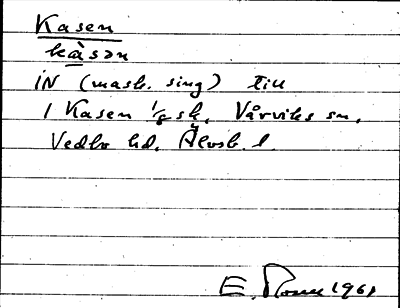 Kasen
kàsən
IN (mask. sing) till
1 Kasen 1/8 sk, Vårviks sn,
Vedbo hd, Älvsb. l.
E. 1961